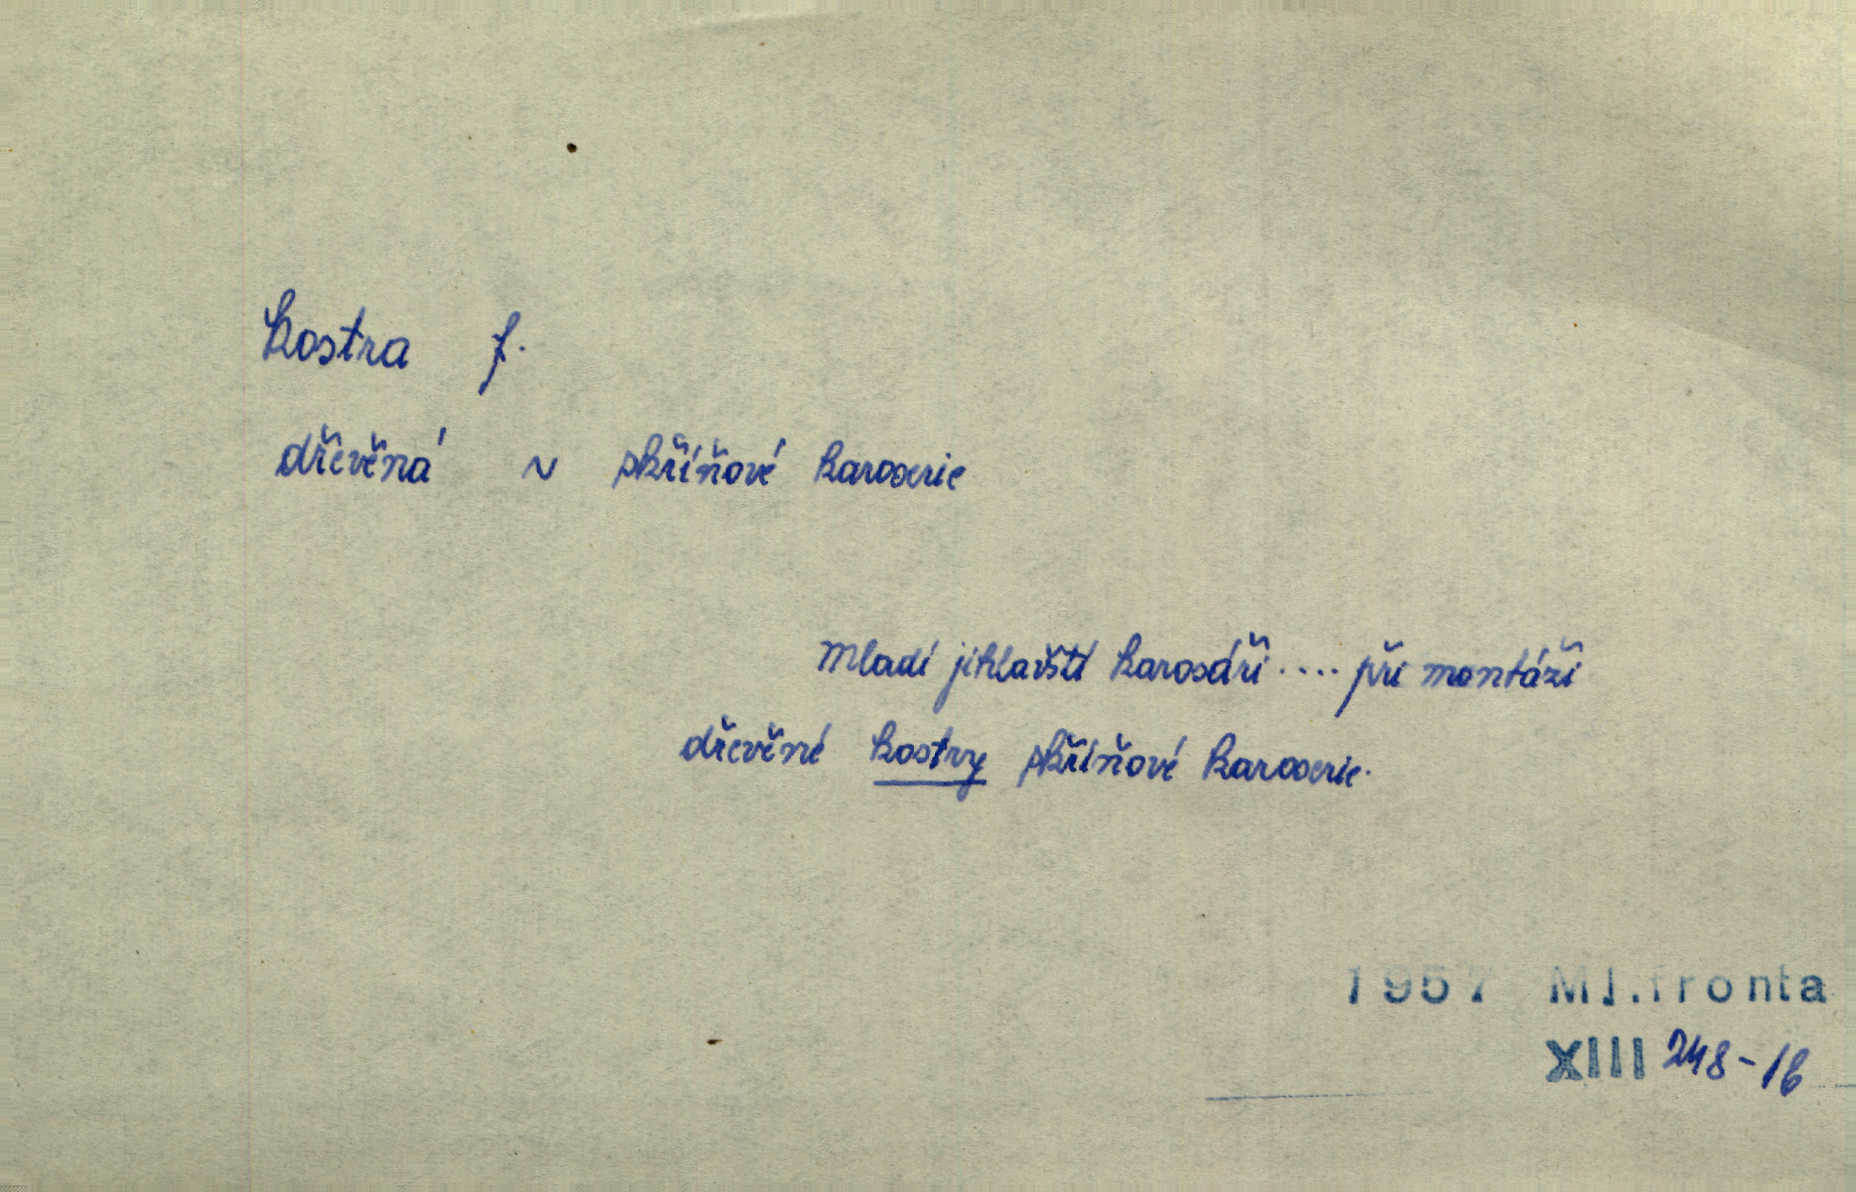 kostra f.
dřevěná ~ skříňové karoserie
Mladí jihlavští karosáři .... při montáži
dřevěné kostry skříňové karoserie.
1957 Ml.fronta
XIII 248-1b